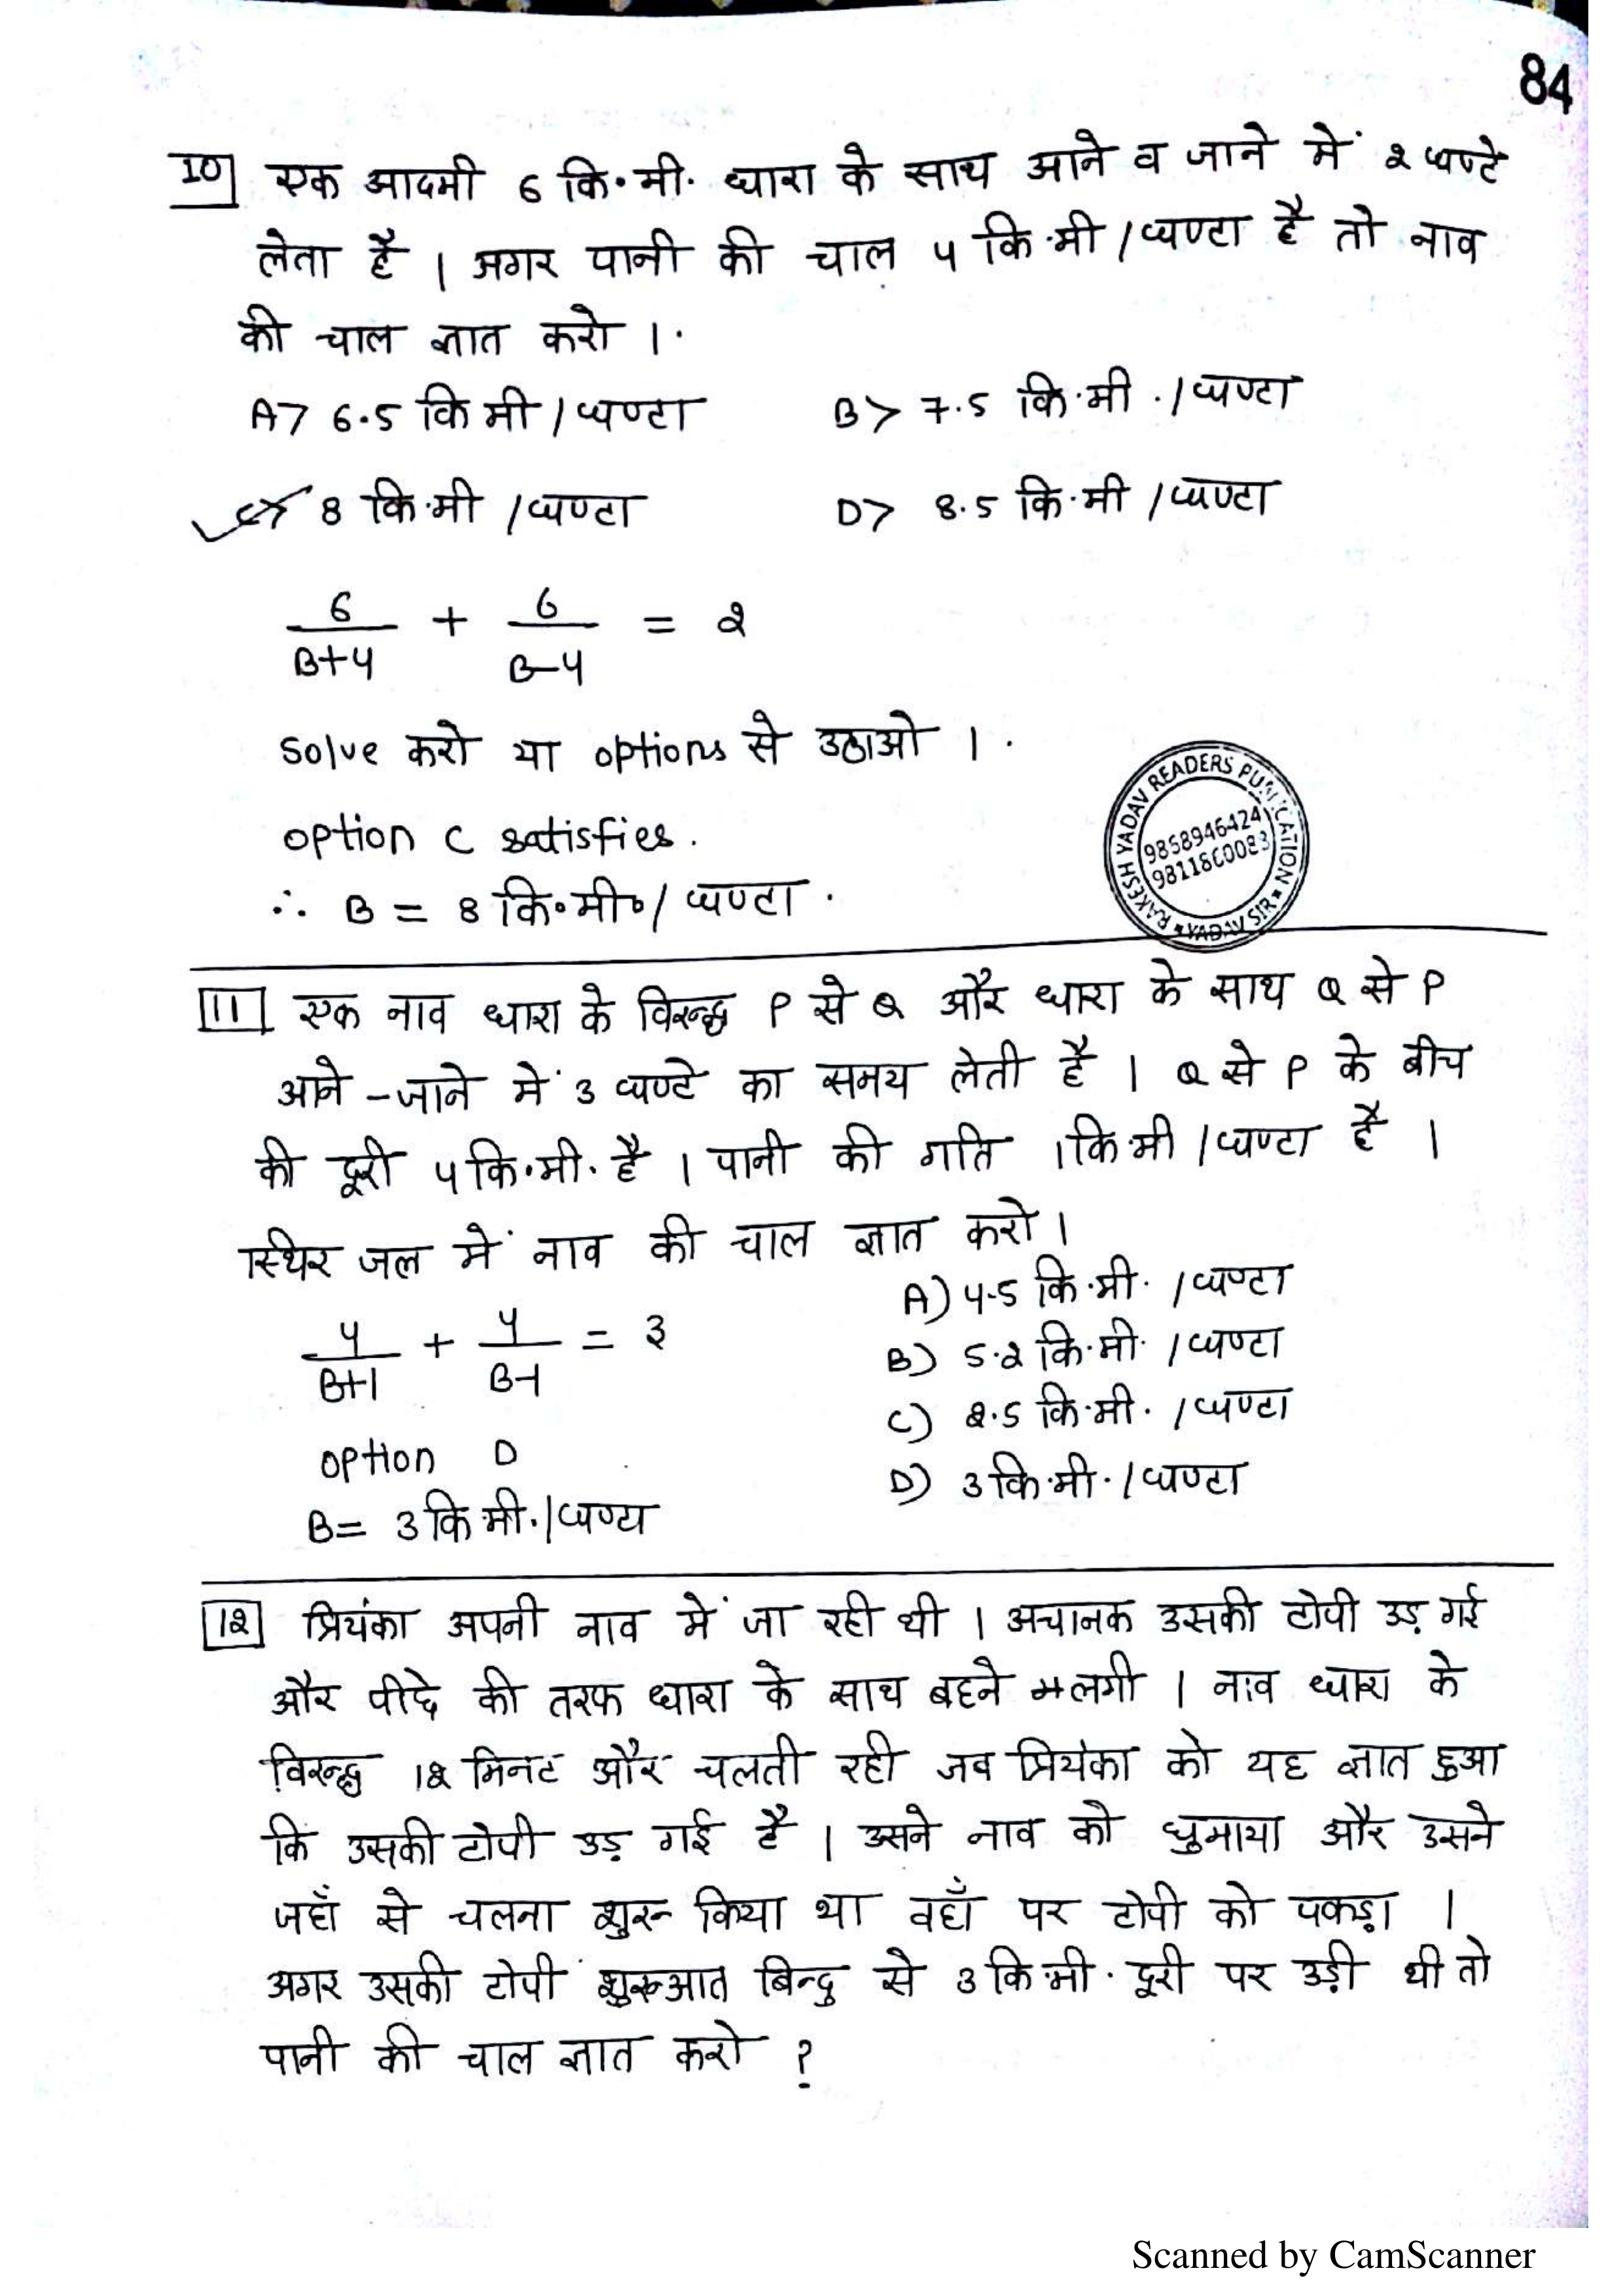 84
10 एक आदमी 6 कि.मी. धारा के साथ आने व जाने में 2 घण्टे
लेता है । अगर पानी की चाल 4 कि.मी / घण्टा है तो नाव
की चाल ज्ञात करो ।
A> 6.5 कि मी / घण्टा B> 7.5 कि.मी. / घण्टा
C> 8 कि.मी / घण्टा D> 8.5 कि.मी / घण्टा
6/B+4 + 6/B-4 = 2
Solve करो या options से उठाओ ।
option C satisfies.
∴ B = 8 कि.मी. / घण्टा .
RAKESH YADAV READERS PUBLICATION
9868946424
9811860083
YADAV SIR
11 एक नाव धारा के विरुद्ध P से Q और धारा के साथ Q से P
आने - जाने में 3 घण्टे का समय लेती है । Q से P के बीच
की दूरी 4 कि.मी. है । पानी की गति 1 कि मी / घण्टा है ।
स्थिर जल में नाव की चाल ज्ञात करो ।
A) 4.5 कि.मी. / घण्टा
4/B+1 + 4/B-1 = 3
B) 5.2 कि.मी. / घण्टा
C) 2.5 कि.मी. / घण्टा
option D
D) 3 कि.मी. / घण्टा
B = 3 कि मी. / घण्टा
12 प्रियंका अपनी नाव में जा रही थी । अचानक उसकी टोपी उड़ गई
और पीछे की तरफ धारा के साथ बहने लगी । नाव धारा के
विरुद्ध 12 मिनट और चलती रही जब प्रियंका को यह ज्ञात हुआ
कि उसकी टोपी उड़ गई है । उसने नाव को घुमाया और उसने
जहाँ से चलना शुरू किया था वहाँ पर टोपी को पकड़ा ।
अगर उसकी टोपी शुरूआत बिन्दु से 3 कि.मी. दूरी पर उड़ी थी तो
पानी की चाल ज्ञात करो ?
Scanned by CamScanner